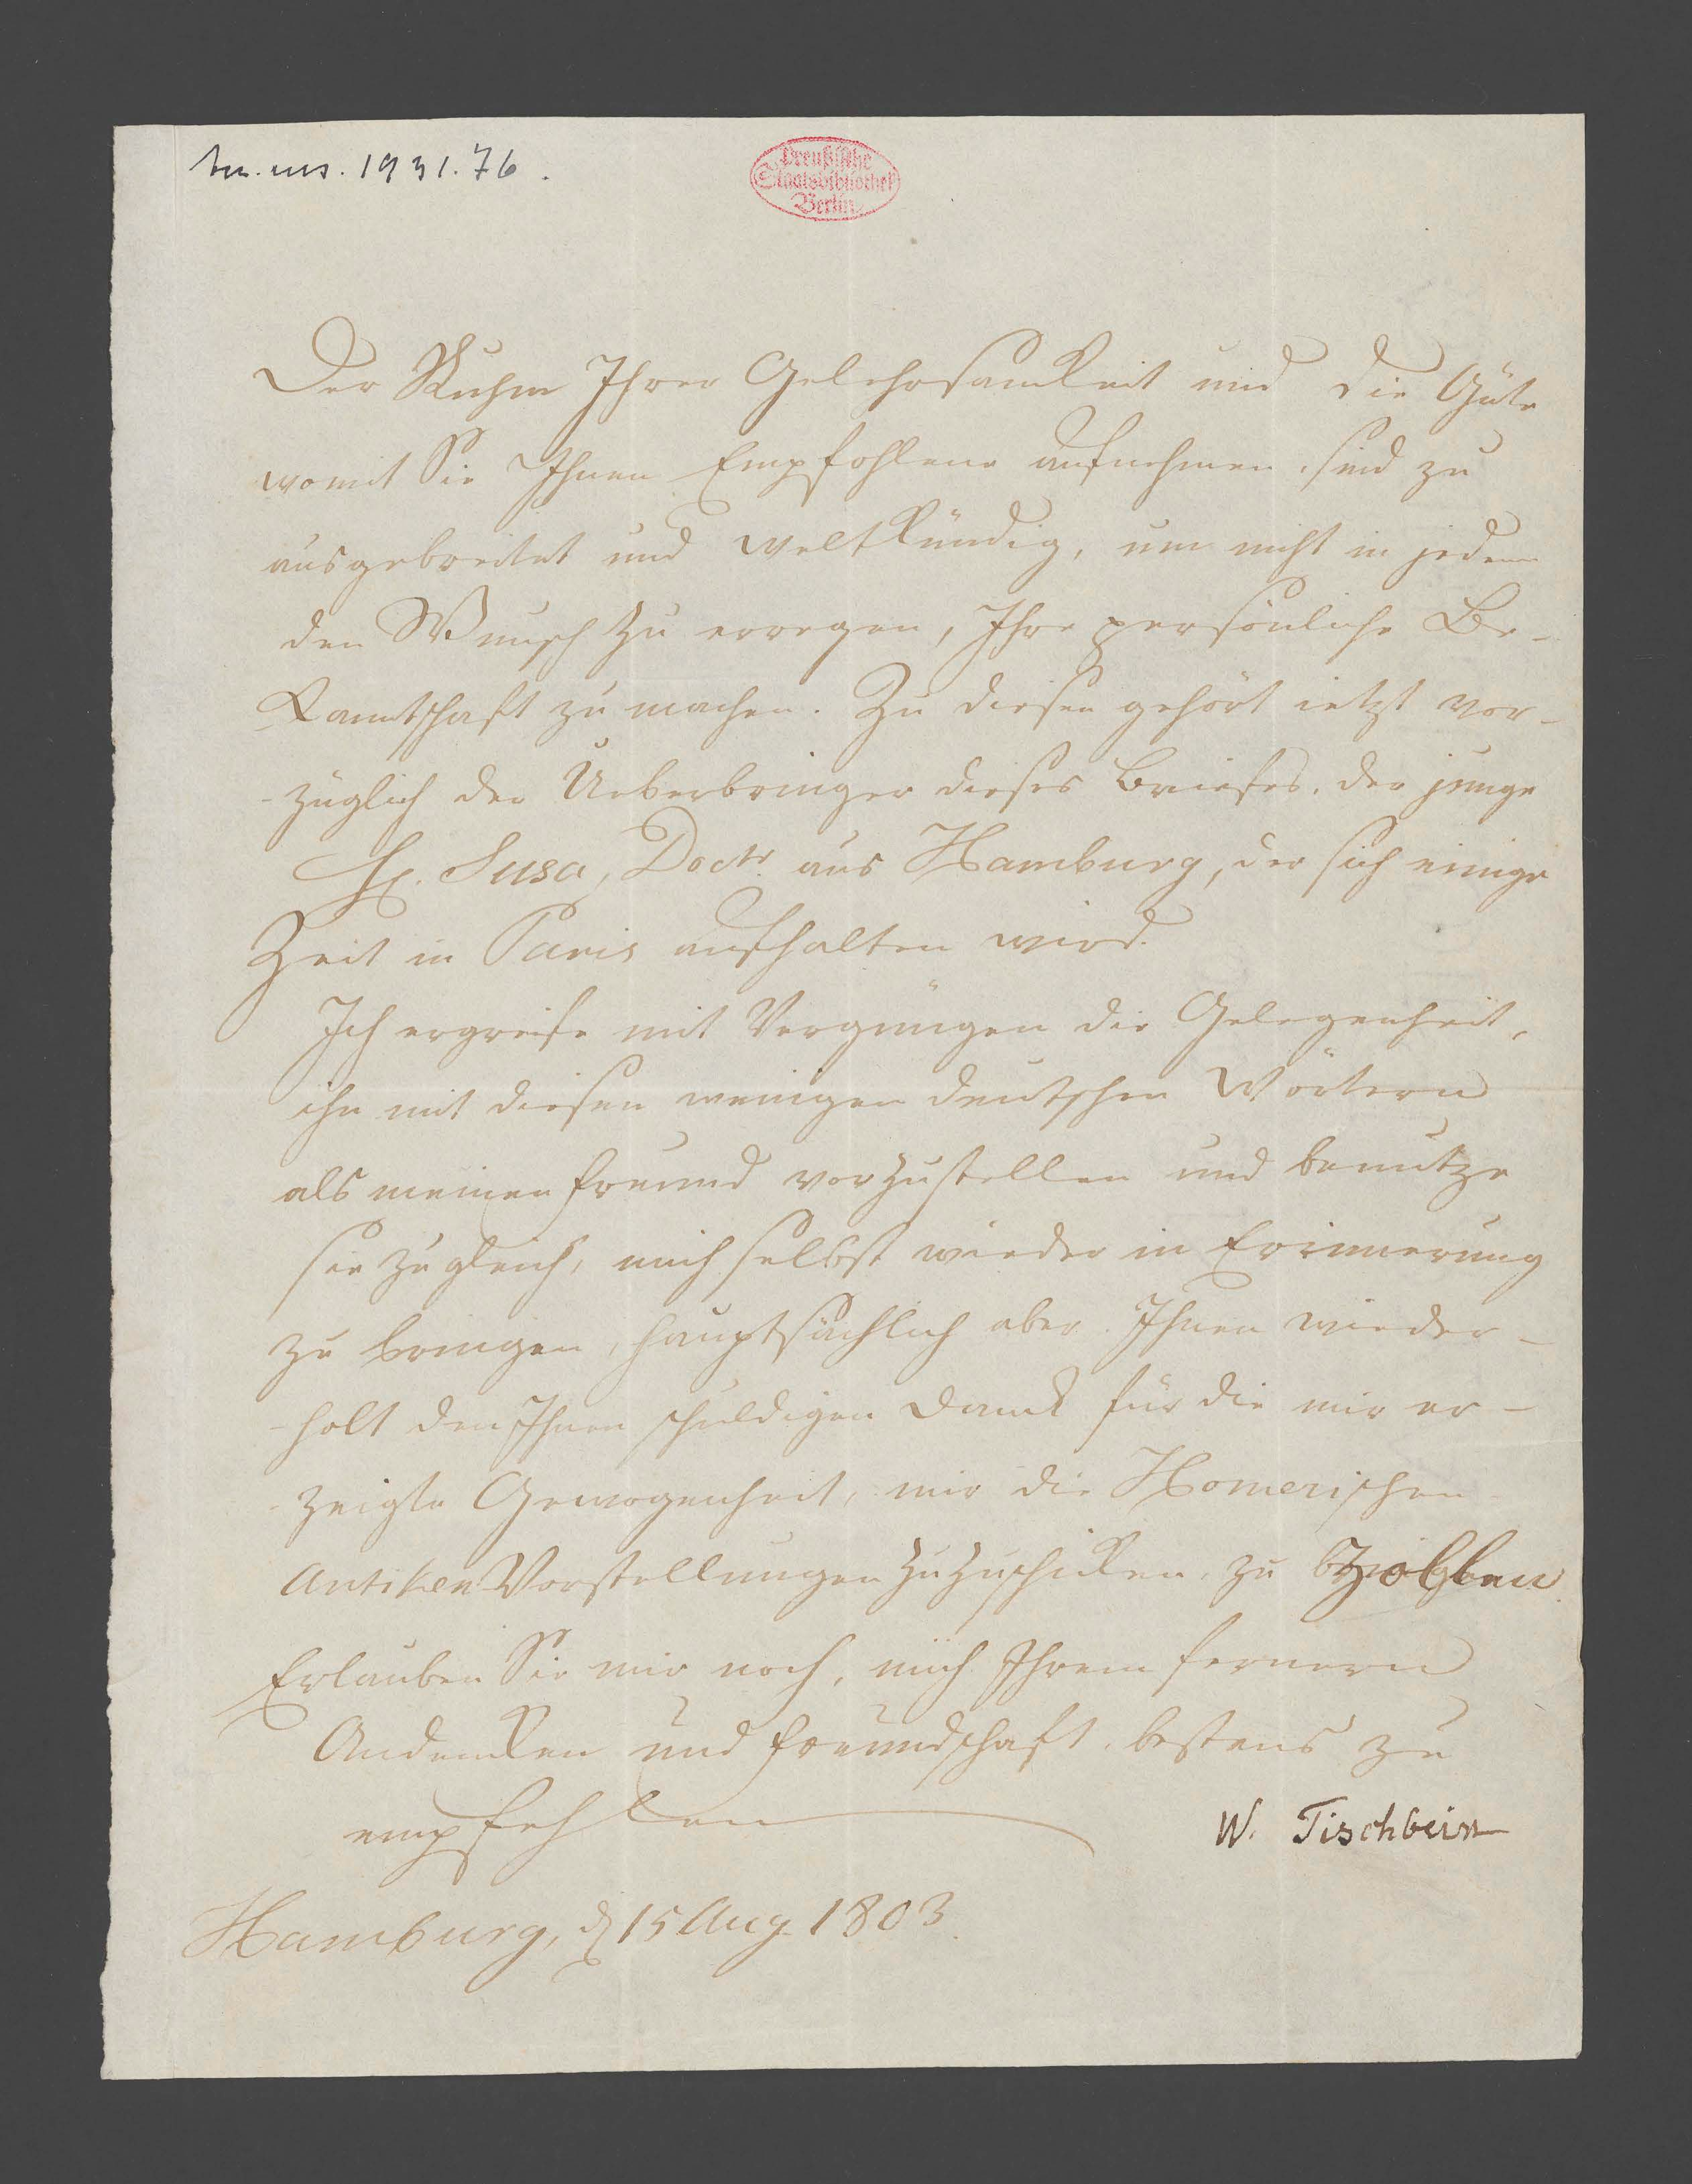 acc. ms. 1931.76.
Preußische
Staatsbibliothek
Berlin
Der Ruhm Ihrer Gelehrsamkeit und die Güte
womit Sie Ihnen Empfohlene aufnehmen, sind zu
ausgebreitet und weltkündig, um nicht in jedem
den Wunsch zu erregen, Ihre persönliche Be-
kanntschaft zu machen. Zu diesen gehört ietzt vor-
-züglich der Ueberbringer dieses Briefes, der junge
H. Susa, Doctr. aus Hamburg, der sich einige
Zeit in Paris aufhalten wird.
Ich ergreife mit Vergnügen die Gelegenheit,
ihn mit diesen wenigen deutschen Wörtern
als meinen Freund vorzustellen und benutze
sie zugleich, mich selbst wieder in Erinnerung
zu bringen, hauptsächlich aber Ihnen wieder-
-holt den Ihnen schuldigen Dank für die mir er-
-zeigte Gewogenheit, mir die Homerischen
Antiken Vorstellungen zuzuschicken, zu
Erlauben Sie mir noch, mich Ihrem fernern
Andenken und Freundschaft bestens zu
empfehlen
W. Tischbein
Hamburg, d 15 Aug. 1803.